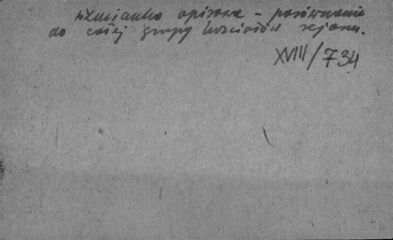 wzmianka opisowa – porównanie
do całej grupy kościołów rejonu.
XVIII/734